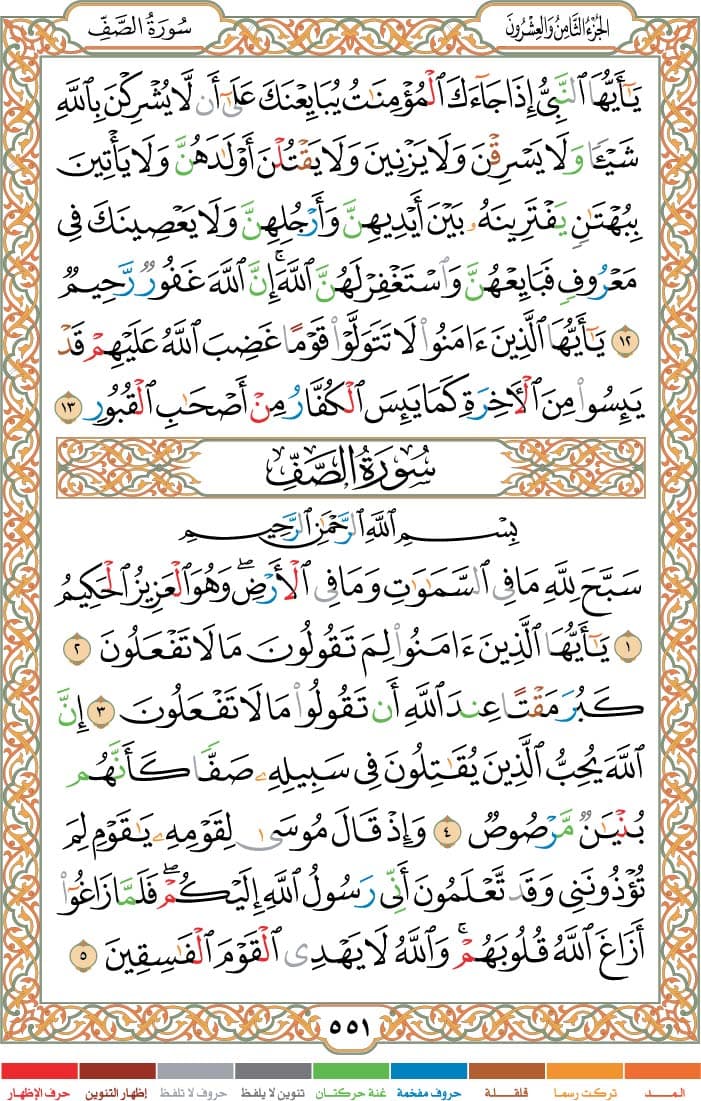 الجُزْءُ الثَّامِنُ وَالعِشْرُونَ
سُورَةُ الصَّفِّ
يَٰٓأَيُّهَا ٱلنَّبِىُّ إِذَا جَآءَكَ ٱلْمُؤْمِنَٰتُ يُبَايِعْنَكَ عَلَىٰٓ أَن لَّا يُشْرِكْنَ بِٱللَّهِ
شَيْـًٔا وَلَا يَسْرِقْنَ وَلَا يَزْنِينَ وَلَا يَقْتُلْنَ أَوْلَٰدَهُنَّ وَلَا يَأْتِينَ
بِبُهْتَٰنٍ يَفْتَرِينَهُۥ بَيْنَ أَيْدِيهِنَّ وَأَرْجُلِهِنَّ وَلَا يَعْصِينَكَ فِى
مَعْرُوفٍ فَبَايِعْهُنَّ وَٱسْتَغْفِرْ لَهُنَّ ٱللَّهَ ۖ إِنَّ ٱللَّهَ غَفُورٌ رَّحِيمٌ
١٢ يَٰٓأَيُّهَا ٱلَّذِينَ ءَامَنُوا۟ لَا تَتَوَلَّوْا۟ قَوْمًا غَضِبَ ٱللَّهُ عَلَيْهِمْ قَدْ
يَئِسُوا۟ مِنَ ٱلْءَاخِرَةِ كَمَا يَئِسَ ٱلْكُفَّارُ مِنْ أَصْحَٰبِ ٱلْقُبُورِ ١٣
سُورَةُ الصَّفِّ
بِسْمِ ٱللَّهِ ٱلرَّحْمَٰنِ ٱلرَّحِيمِ
سَبَّحَ لِلَّهِ مَا فِى ٱلسَّمَٰوَٰتِ وَمَا فِى ٱلْأَرْضِ ۖ وَهُوَ ٱلْعَزِيزُ ٱلْحَكِيمُ
١ يَٰٓأَيُّهَا ٱلَّذِينَ ءَامَنُوا۟ لِمَ تَقُولُونَ مَا لَا تَفْعَلُونَ ٢
كَبُرَ مَقْتًا عِندَ ٱللَّهِ أَن تَقُولُوا۟ مَا لَا تَفْعَلُونَ ٣ إِنَّ
ٱللَّهَ يُحِبُّ ٱلَّذِينَ يُقَٰتِلُونَ فِى سَبِيلِهِۦ صَفًّا كَأَنَّهُم
بُنْيَٰنٌ مَّرْصُوصٌ ٤ وَإِذْ قَالَ مُوسَىٰ لِقَوْمِهِۦ يَٰقَوْمِ لِمَ
تُؤْذُونَنِى وَقَد تَّعْلَمُونَ أَنِّى رَسُولُ ٱللَّهِ إِلَيْكُمْ ۖ فَلَمَّا زَاغُوٓا۟
أَزَاغَ ٱللَّهُ قُلُوبَهُمْ ۚ وَٱللَّهُ لَا يَهْدِى ٱلْقَوْمَ ٱلْفَٰسِقِينَ ٥
٥٥١
المــد
تركت رسما
قلقـلة
حروف مفخمة
غنة حركتان
تنوين لا يلفظ
حروف لا تلفظ
إظهار التنوين
حرف الإظهار